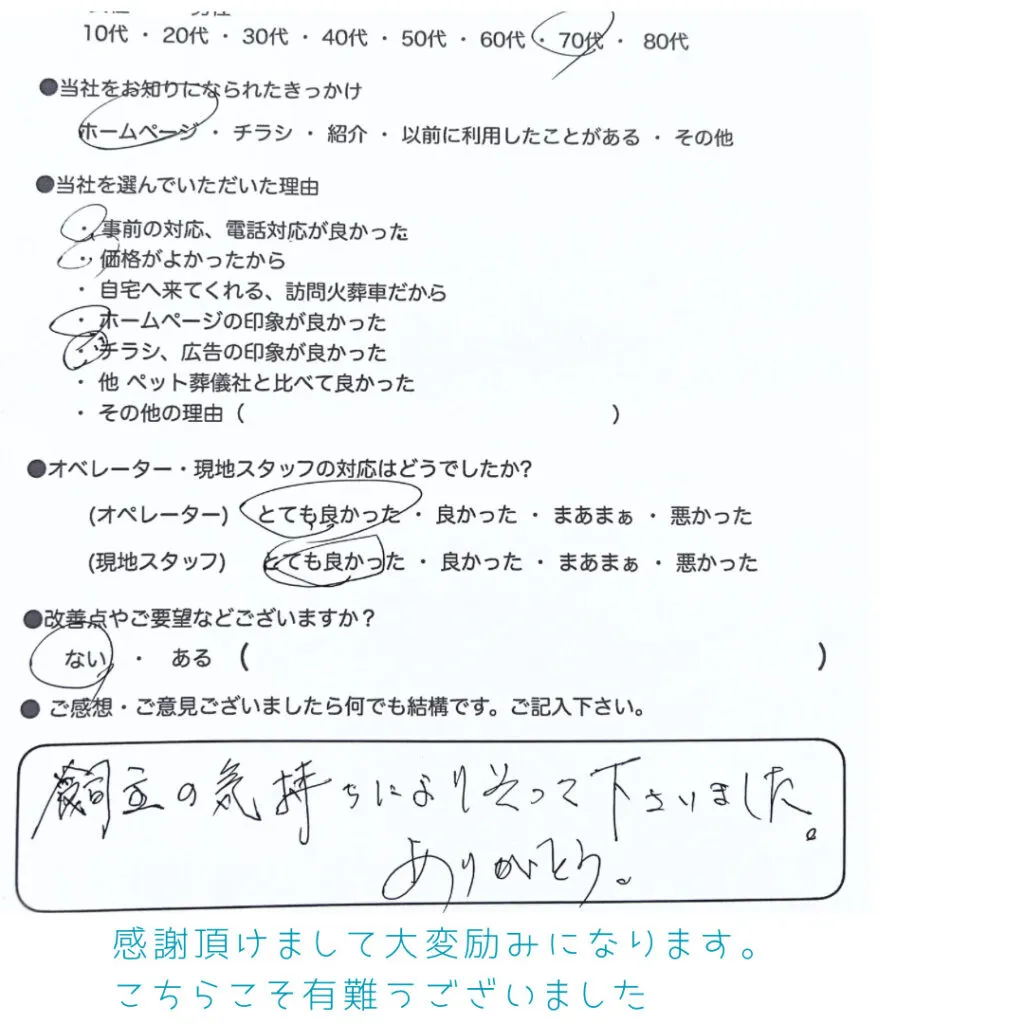 10代 ・ 20代 ・ 30代 ・ 40代 ・ 50代 ・ 60代 ・ 70代 ・ 80代
●当社をお知りになられたきっかけ
ホームページ ・ チラシ ・ 紹介 ・ 以前に利用したことがある ・ その他
●当社を選んでいただいた理由
・ 事前の対応、電話対応が良かった
・ 価格がよかったから
・ 自宅へ来てくれる、訪問火葬車だから
・ ホームページの印象が良かった
・ チラシ、広告の印象が良かった
・ 他 ペット葬儀社と比べて良かった
・ その他の理由 ( )
●オペレーター・現地スタッフの対応はどうでしたか?
(オペレーター) とても良かった ・ 良かった ・ まあまぁ ・ 悪かった
(現地スタッフ) とても良かった ・ 良かった ・ まあまぁ ・ 悪かった
●改善点やご要望などございますか？
ない ・ ある ( )
● ご感想・ご意見ございましたら何でも結構です。ご記入下さい。
の気持ちにより そって下さいました。
ありがとう。
感謝頂けまして大変励みになります。
こちらこそ有難うございました